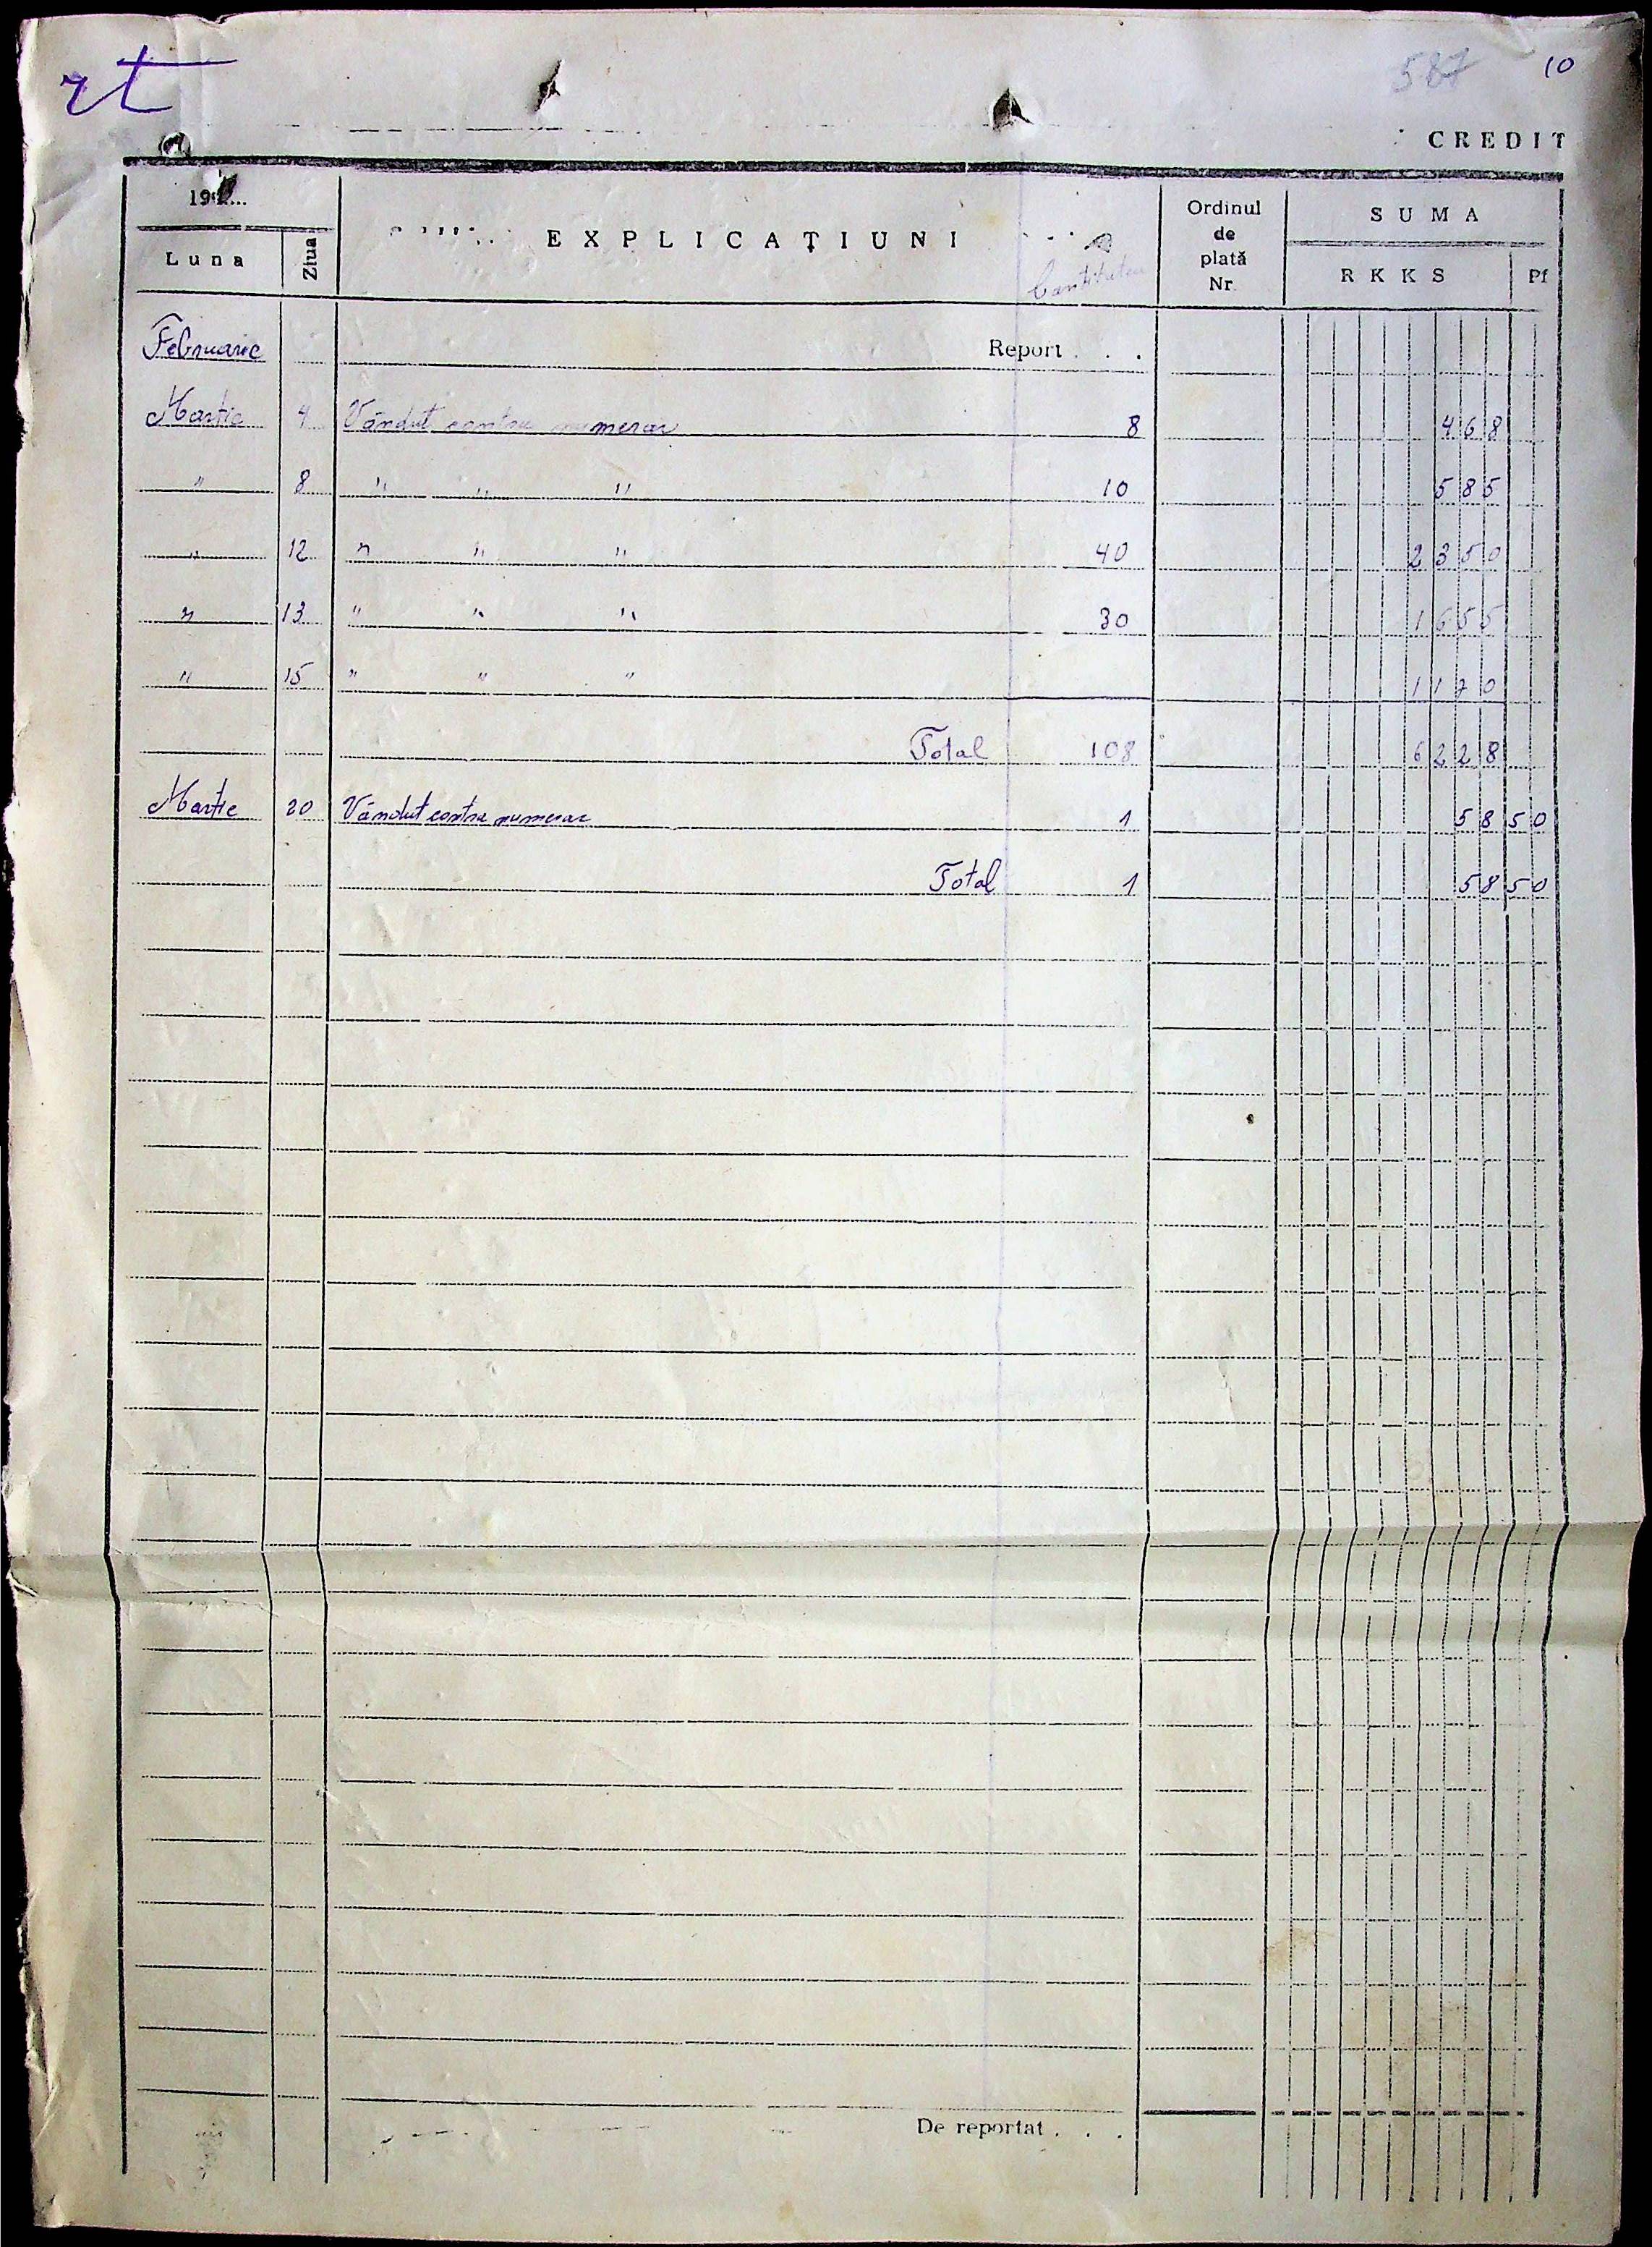 rt
587 10
CREDIT
194...
Luna Ziua EXPLICAȚIUNI Cantitatea Ordinul de plată Nr. SUMA RKKS Pf
Februarie Report . . .
Martie 4 Vândut contra numerar 8 468
" 8 " " " 10 585
" 12 " " " 40 2350
" 13 " " " 30 1655
" 15 " " " 1170
Total 108 6228
Martie 20 Vândut contra numerar 1 58 50
Total 1 58 50
De reportat . . .